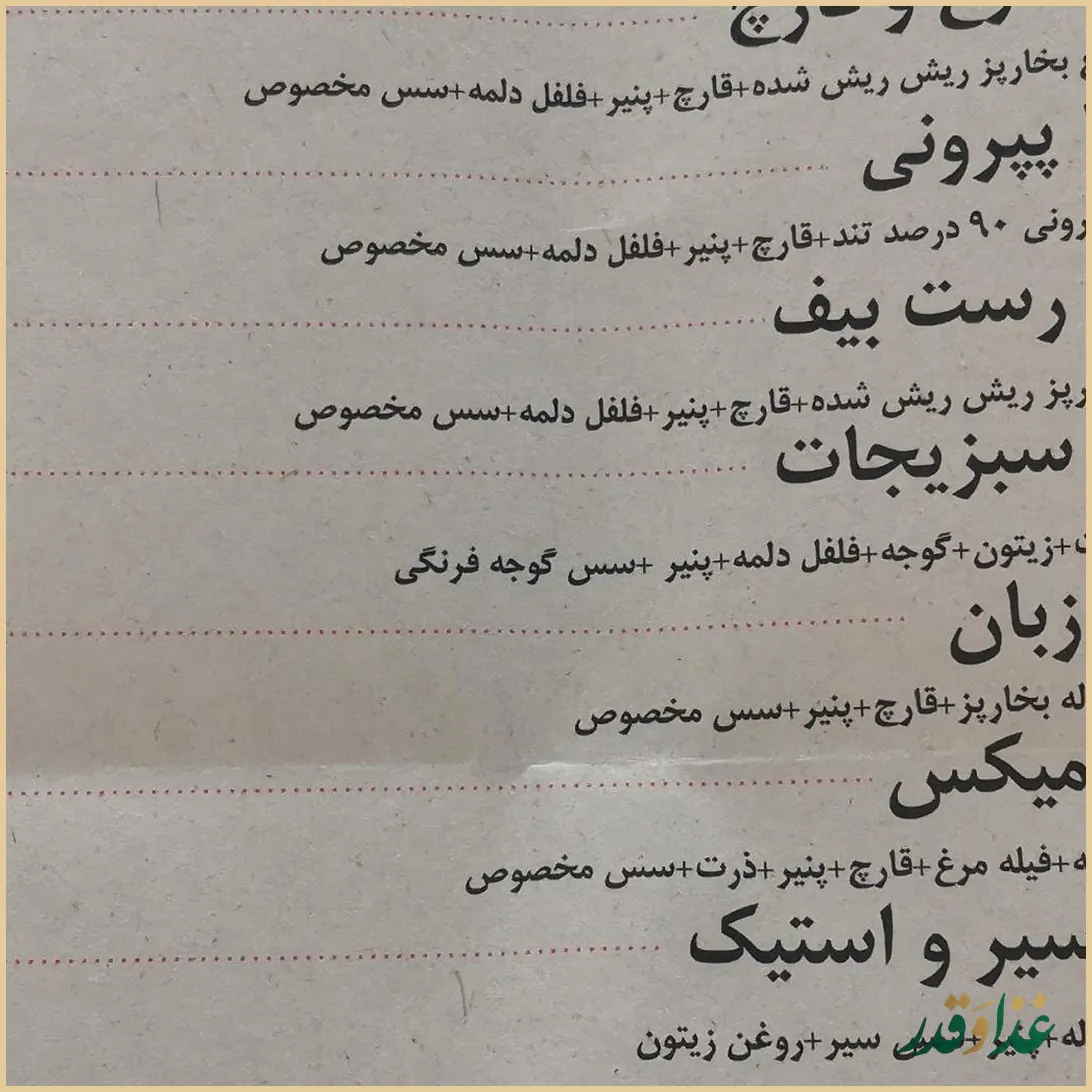 و قارچ
بخارپز ریش ریش شده+قارچ+پنیر+فلفل دلمه+سس مخصوص
پپرونی
۹۰ درصد تند+قارچ+پنیر+فلفل دلمه+سس مخصوص
رست بیف
ریش ریش شده+قارچ+پنیر+فلفل دلمه+سس مخصوص
سبزیجات
+زیتون+گوجه+فلفل دلمه+پنیر +سس گوجه فرنگی
زبان
بخارپز+قارچ+پنیر+سس مخصوص
میکس
+فیله مرغ+قارچ+پنیر+ذرت+سس مخصوص
سیر و استیک
+پنیر+سس سیر+روغن زیتون
غذا و قدر